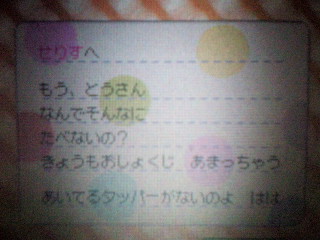 せりすへ
もう、とうさん
なんでそんなに
たべないの？
きょうもおしょくじ　あまっちゃう
あいてるタッパーがないのよ　はは